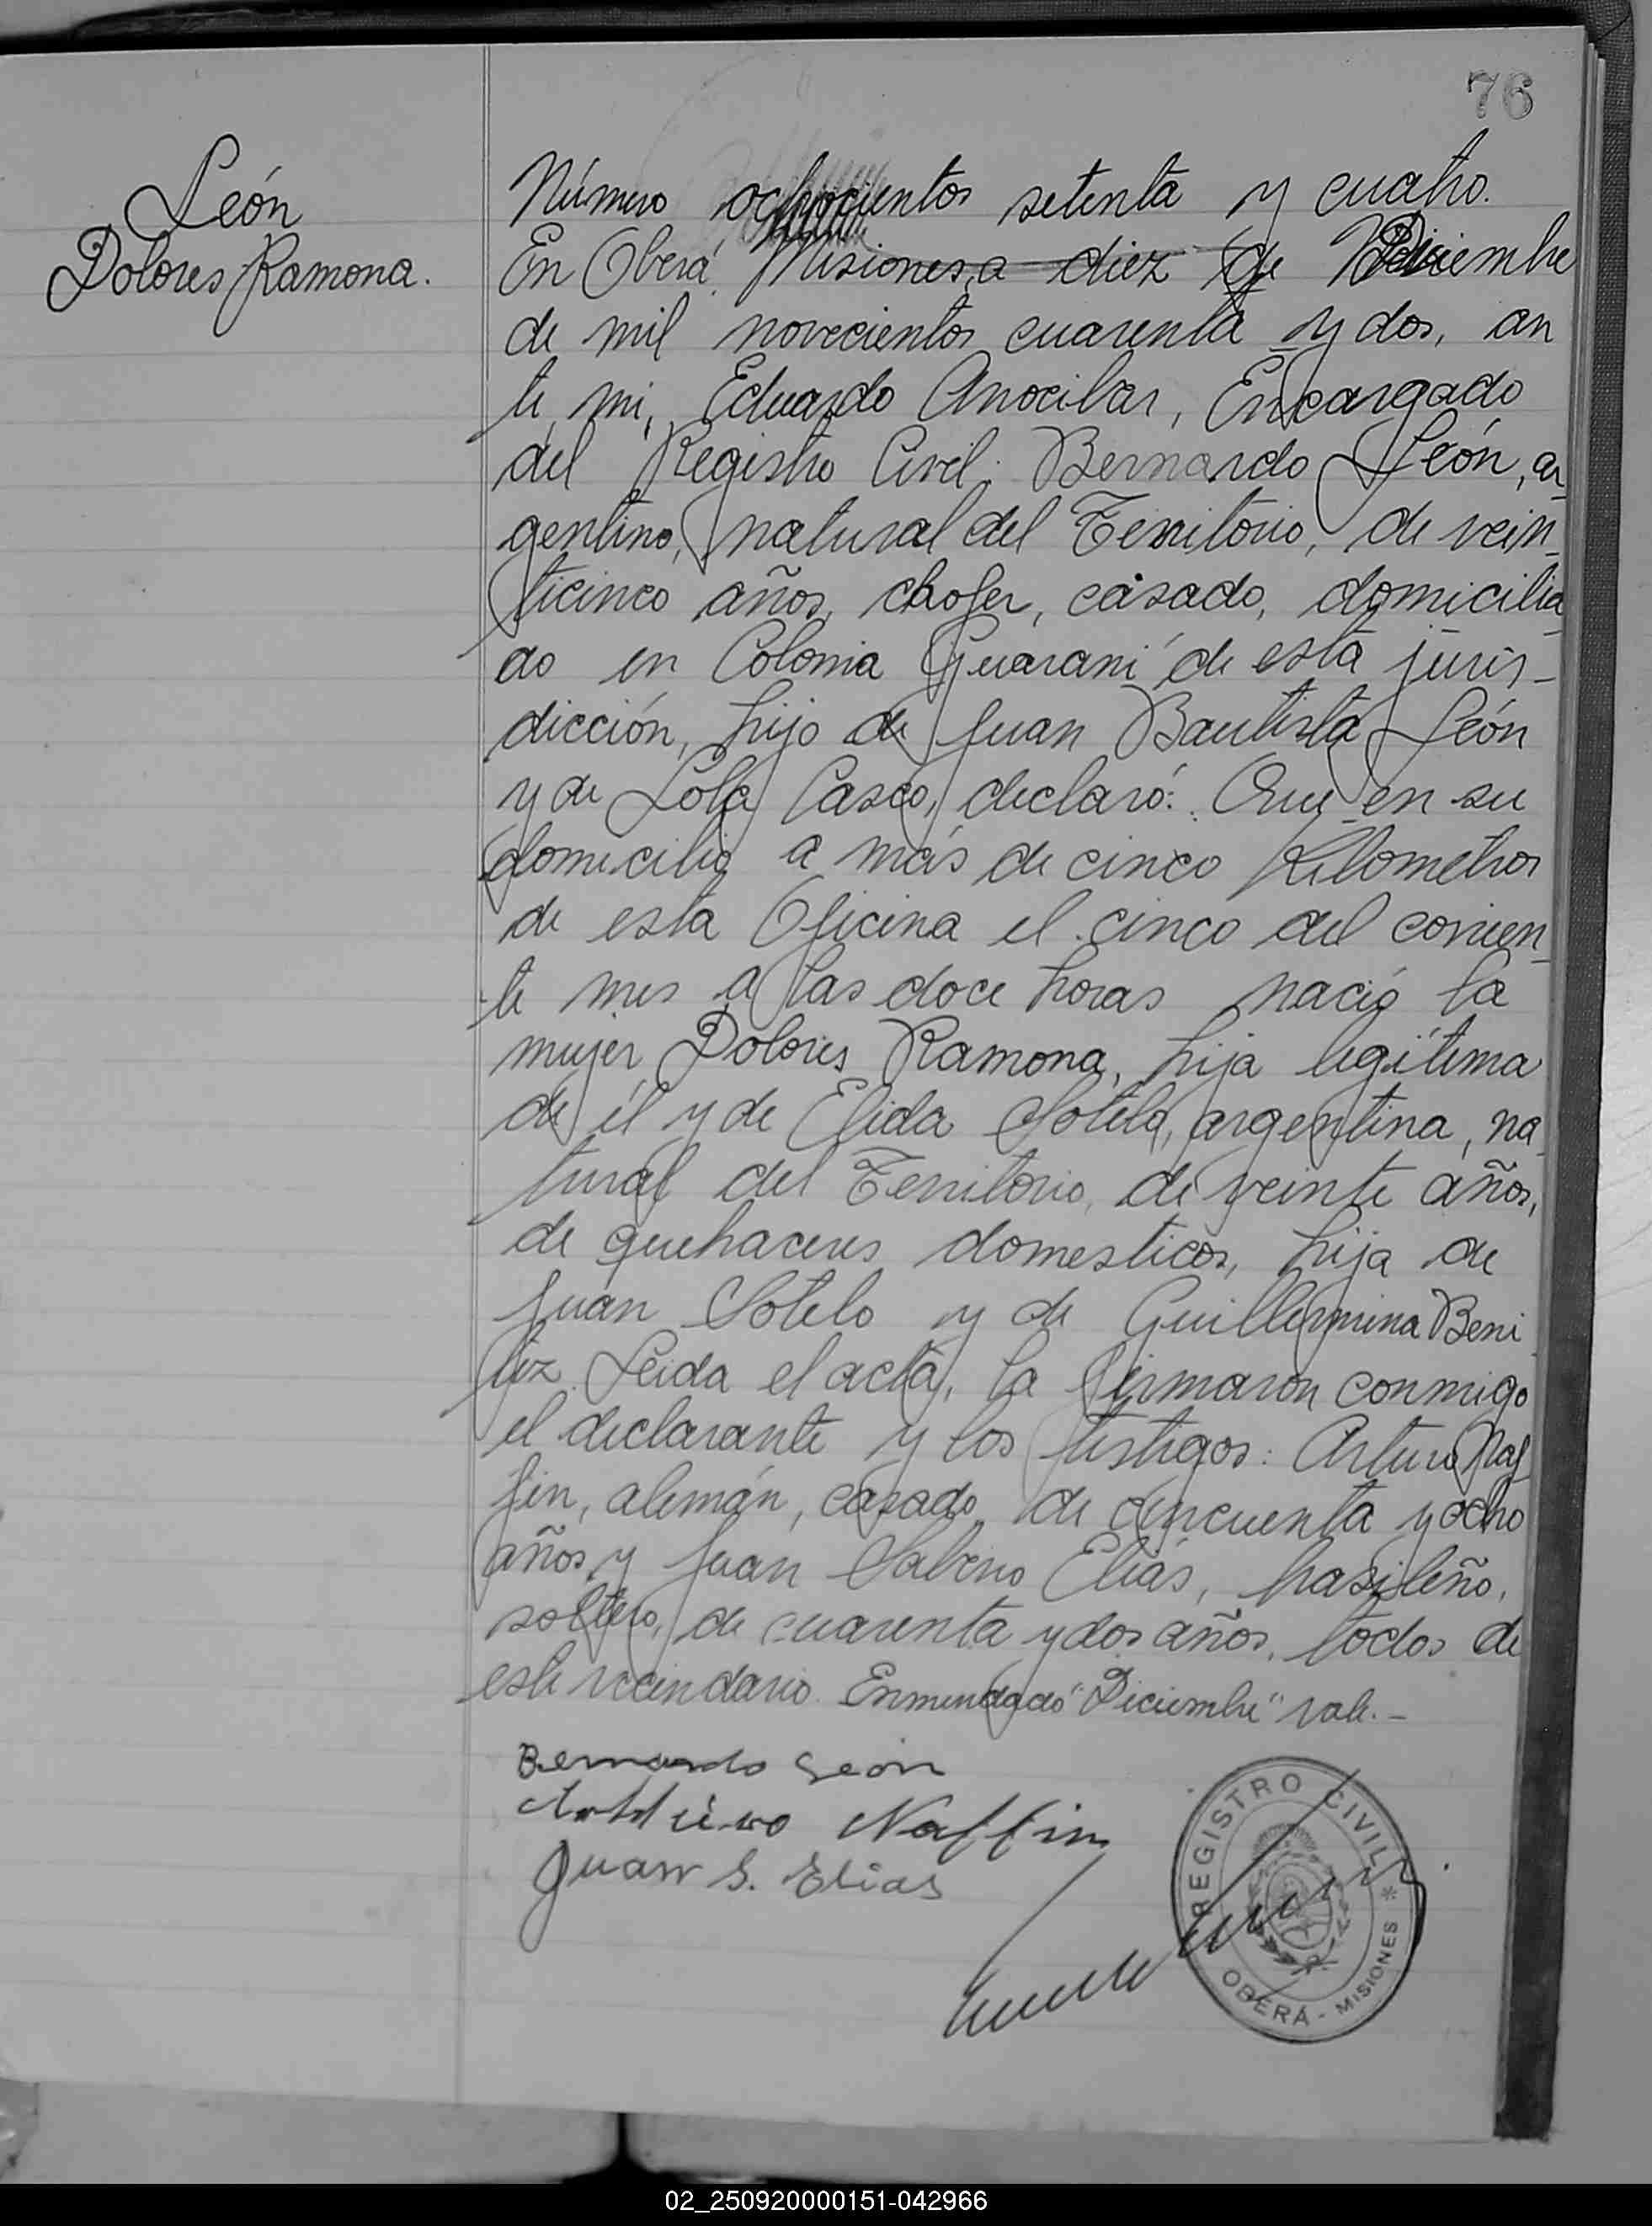 76
León
Dolores Ramona.
Número ochocientos setenta y cuatro.
En Oberá, Misiones, a diez de Diciembre
de mil novecientos cuarenta y dos, an
te mi, Eduardo Anocibar, Encargado
del Registro Civil: Bernardo León, ar
gentino, natural del Territorio, de vein_
ticinco años, chofer, casado, domicilia_
do en Colonia Guaraní de esta juris_
dicción, hijo de Juan Bautista León
y de Lola Casco, declaró: Que en su
domicilio a más de cinco Kilometros
de esta Oficina el cinco del corrien_
te mes a las doce horas nació la
mujer Dolores Ramona, hija legítima
de él y de Elida Sotelo, argentina, na_
tural del Territorio, de veinte años,
de quehaceres domesticos, hija de
Juan Sotelo y de Guillermina Beni_
tez. Leida el acta, la firmaron conmigo
el declarante y los testigos: Arturo Naf
fin, alemán, casado, de cincuenta y ocho
años y Juan Sabino Elías, brasileño,
soltero, de cuarenta y dos años, todos de
este vecindario. Enmendado "Diciembre" vale.-
Bernardo León
Arthuro Naffin
Juan S. Elias
REGISTRO CIVIL
OBERÁ - MISIONES *
02_250920000151-042966